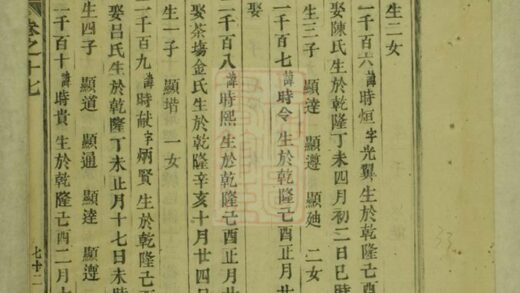 生二女
一千百六 諱時烜 字光翼 生於乾隆己
娶陳氏生於乾隆丁未四月初二日巳時
生三子 顯達 顯遵 顯 二女
一千百七 諱時令 生於乾隆己酉正月
娶
一千百八 諱時熙 生於乾隆己酉正月
娶茶塲金氏生於乾隆辛亥十月廿四日
生一子 顯堦 一女
一千百九 諱時献 字炳賢 生於乾隆己
娶呂氏生於乾隆丁未正月十七日未時
生四子 顯道 顯通 顯達 顯遵
一千百十 諱時貴 生於乾隆己酉二月十
卷之十七
七十二